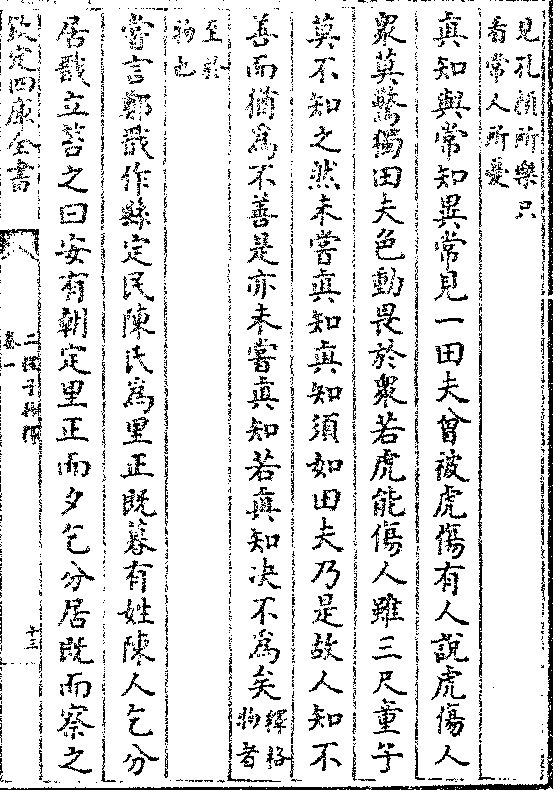 見孔顔所樂只
看常人所憂
真知與常知異常見一田夫曾被虎傷有人說虎傷人
衆莫驚獨田夫色動畏於衆若虎能傷人雖三尺童子
莫不知之然未嘗真知真知須如田夫乃是故人知不
善而猶為不善是亦未嘗真知若真知决不為矣釋格
物者
至於
物也
嘗言鄭戩作縣定民陳氏為里正既暮有姓陳人乞分
居戩立笞之曰安有朝定里正而夕乞分居既而察之
欽定四庫全書
卷一
十三